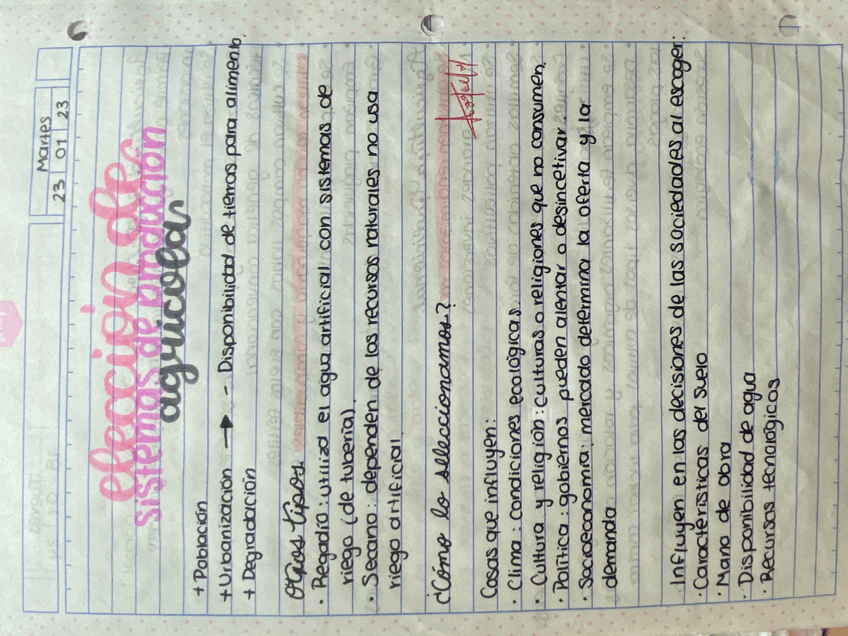 Martes
23 01 23
elección de
sistemas de producción
agrícola
+ Población
+ Urbanización → - Disponibilidad de tierras para alimento
+ Degradación
Otros tipos
· Regadío: utiliza el agua artificial con sistemas de
riego (de tubería).
· Secano: dependen de los recursos naturales no usa
riego artificial.
¿Cómo lo seleccionamos?
Cosas que influyen:
· Clima: condiciones ecológicas.
· Cultura y religión: culturas o religiones que no consumen.
· Política: gobiernos pueden alentar o desincetivar.
· Socioeconomía: mercado determina la oferta y la
demanda
Influyen en las decisiones de las sociedades al escoger:
· Características del suelo
· Mano de obra
· Disponibilidad de agua
· Recursos tecnológicos